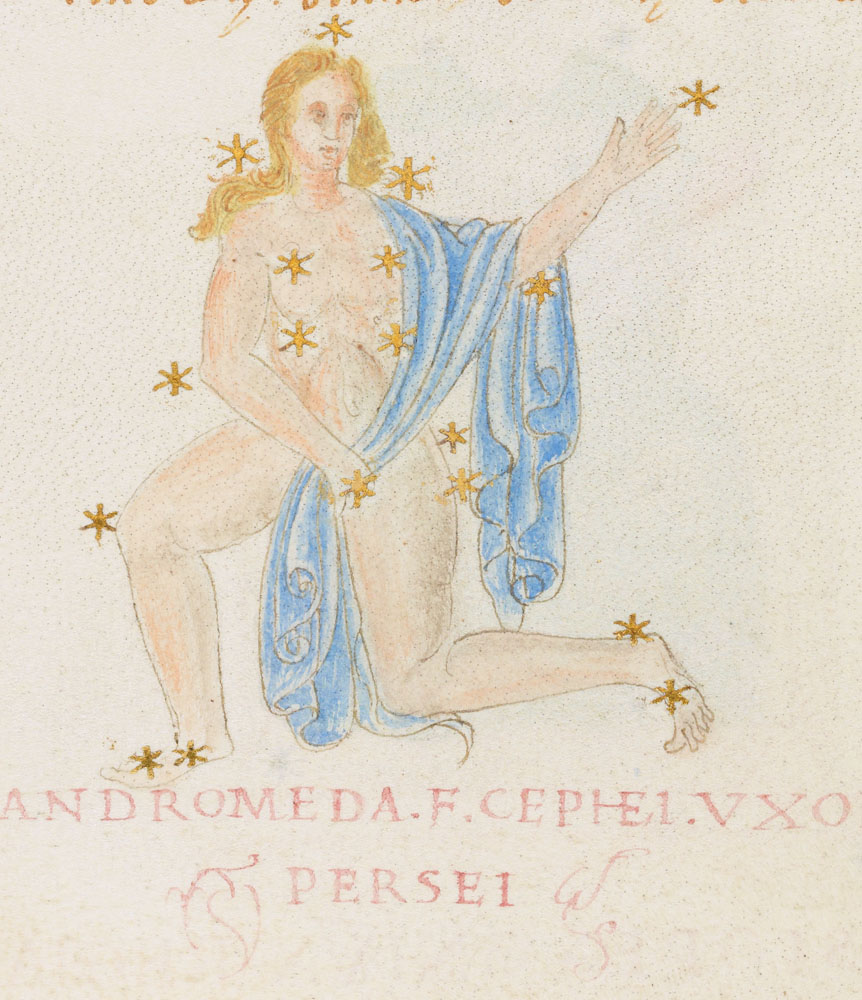 ANDROMEDA.F.CEPHEI.VXO
PERSEI